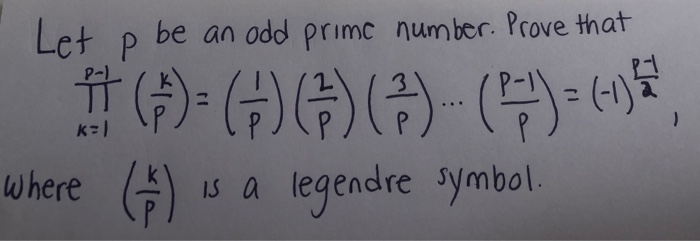 Let p be an odd prime number. Prove that
p-1 ∏ k=1 (k/p) = (1/p) (2/p) (3/p) ... (p-1/p) = (-1)^(p-1/2) ,
where (k/p) is a legendre symbol.